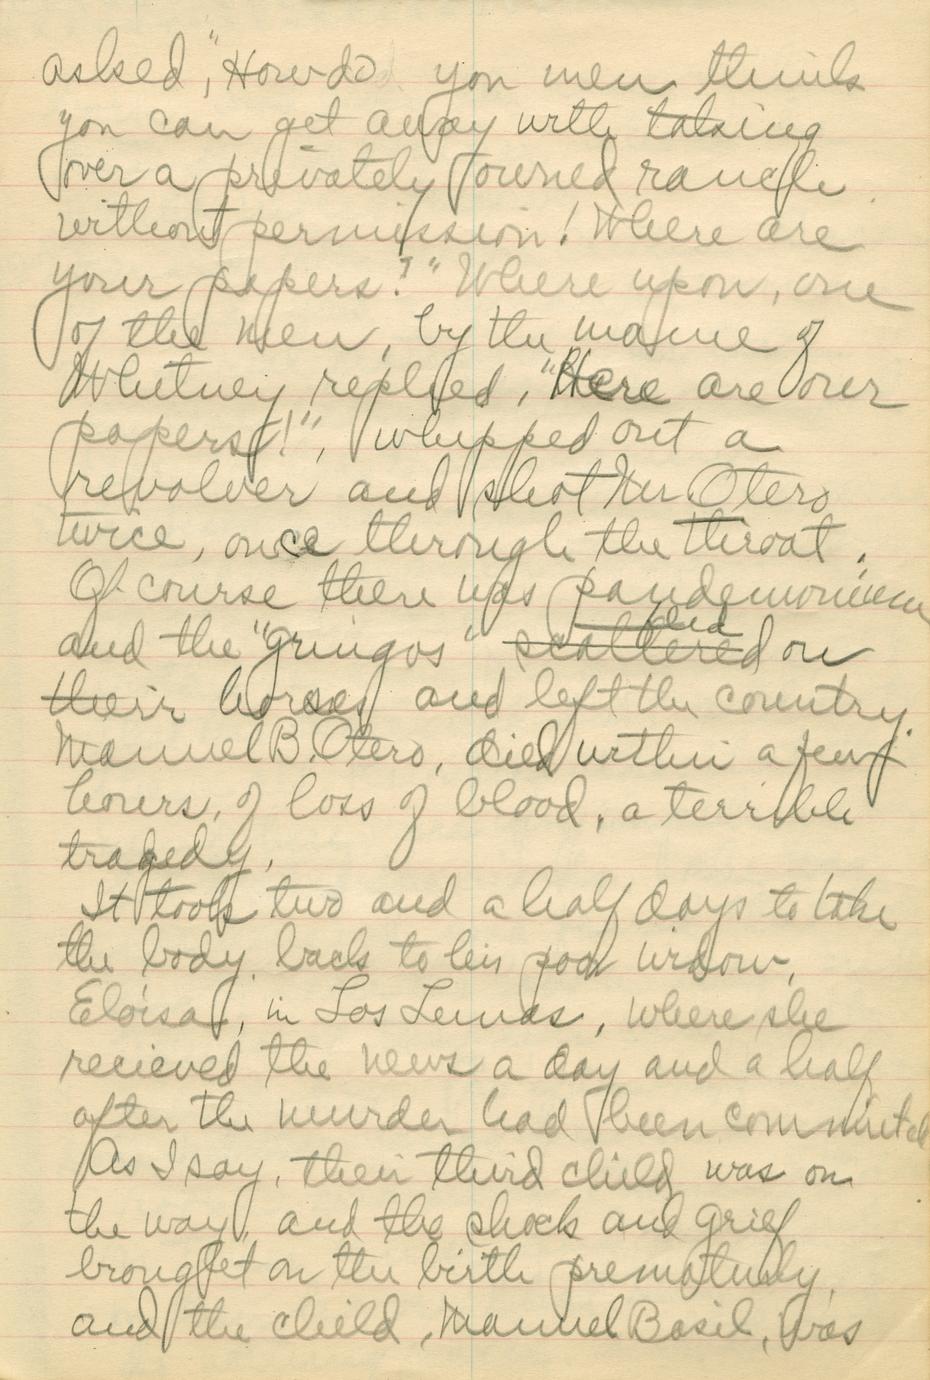 asked, "How do you men think
you can get away with taking
over a privately owned ranch
without permission! Where are
your papers?" Where upon, one
of the men, by the name of
Whitney replied, "Here are our
papers!", whipped out a
revolver and shot Mr. Otero
twice, once through the throat.
Of course there was pandemonium
and the "gringos" scattered fled on
their horses and left the country.
Manuel B. Otero, died within a few
hours, of loss of blood, a terrible
tragedy.
It took two and a half days to take
the body back to his poor widow,
Eloisa, in Los Lunas, where she
recieved the news a day and a half
after the murder had been commited
As I say, their third child was on
the way, and the shock and grief
brought on the birth prematurely,
and the child, Manuel Basil, was